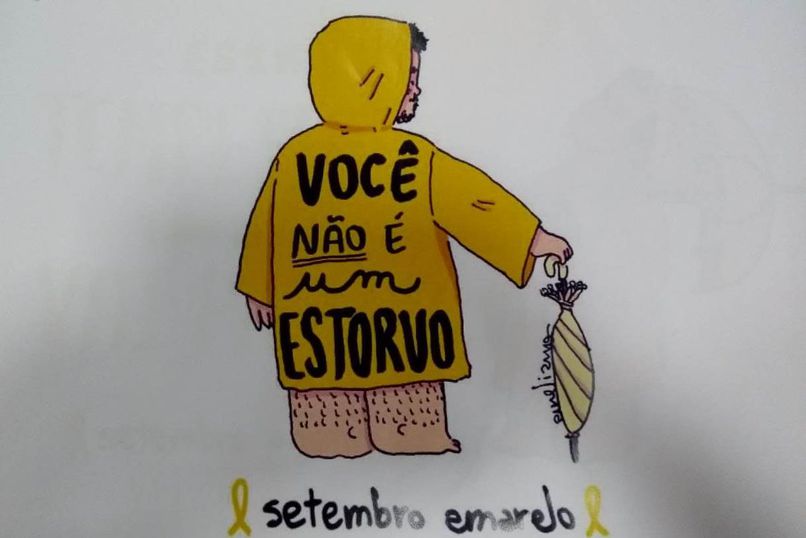 VOCÊ
NÃO É
um
ESTORVO
aureliano
setembro emarelo